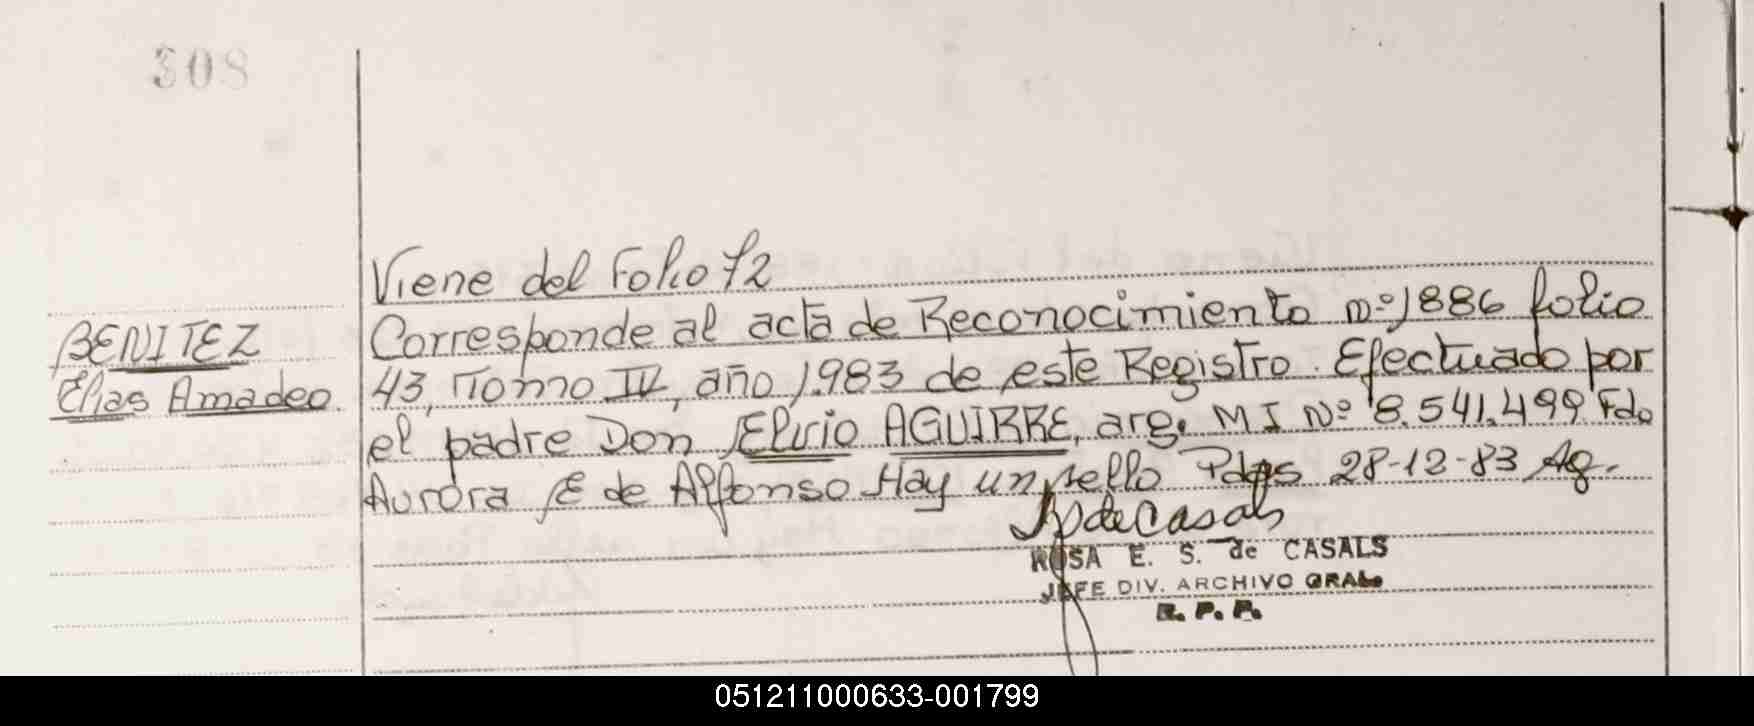 308
Viene del Folio 72
BENITEZ
Elias Amadeo
Corresponde al acta de Reconocimiento nº 1886 folio
43, Tomo IV, año 1.983 de este Registro. Efectuado por
el padre Don Elvio AGUIRRE, arg. M I Nº 8.541.499 Fdo
Aurora E de Alfonso Hay un sello Pdas 28-12-83 Ag.
de Casals
ROSA E. S. de CASALS
JEFE DIV. ARCHIVO GRAL.
R. P. P.
051211000633-001799